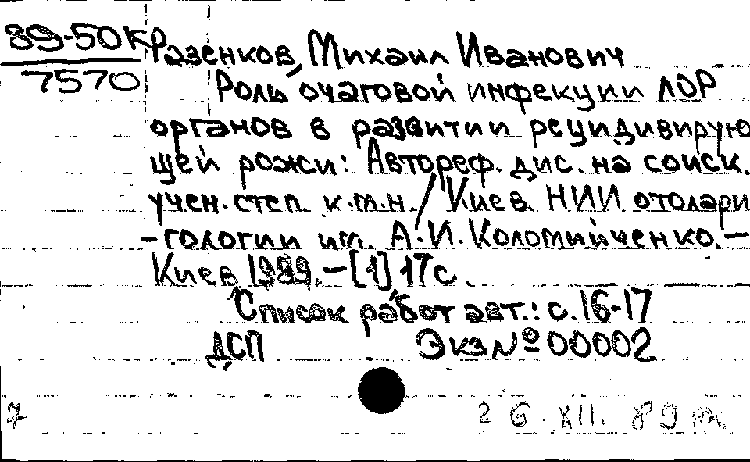 89-50К
7570
Разенков, Михаил Иванович
Роль очаговой инфекции ЛОР
органов в развитии рецидивирую
щей рожи: Автореф. дис. на соиск.
учен. степ к.м.н. / Киев. НИИ отолари
-гологии им. А.И. Коломийченко. –
Киев, 1989. – [1] 17 с.
Список работ авт.: с. 16-17
ДСП Экз № 00002
7
26. XII. 89